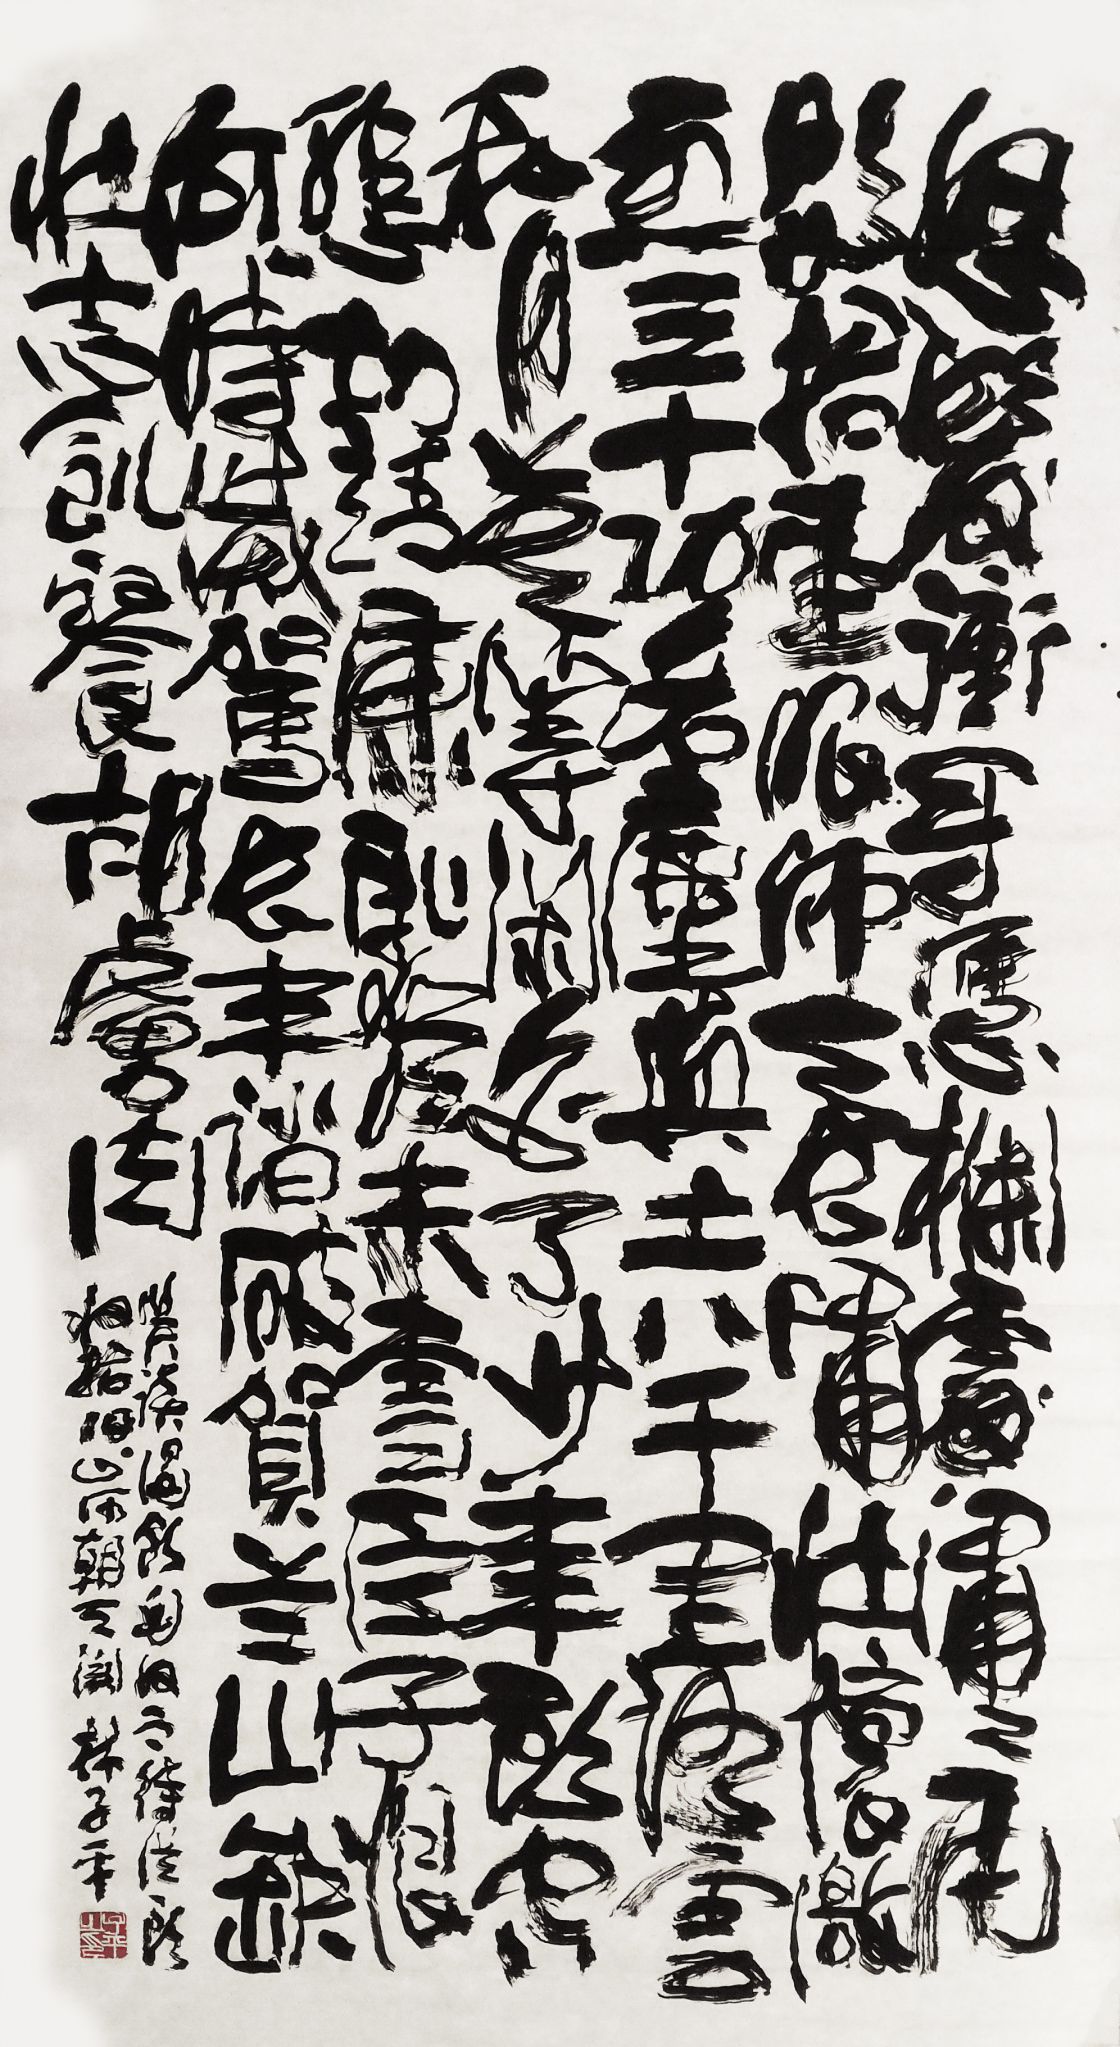 怒髮衝冠憑欄處瀟瀟雨
歇抬望眼仰天長嘯壯懷激
烈三十功名塵與土八千里路雲
和月莫等閑白了少年頭空
悲切靖康恥猶未雪臣子恨
何時滅駕長車踏破賀蘭山缺
壯志飢餐胡虜肉
笑談渴飲匈奴血待從頭
收拾舊山河朝天闕 林子平